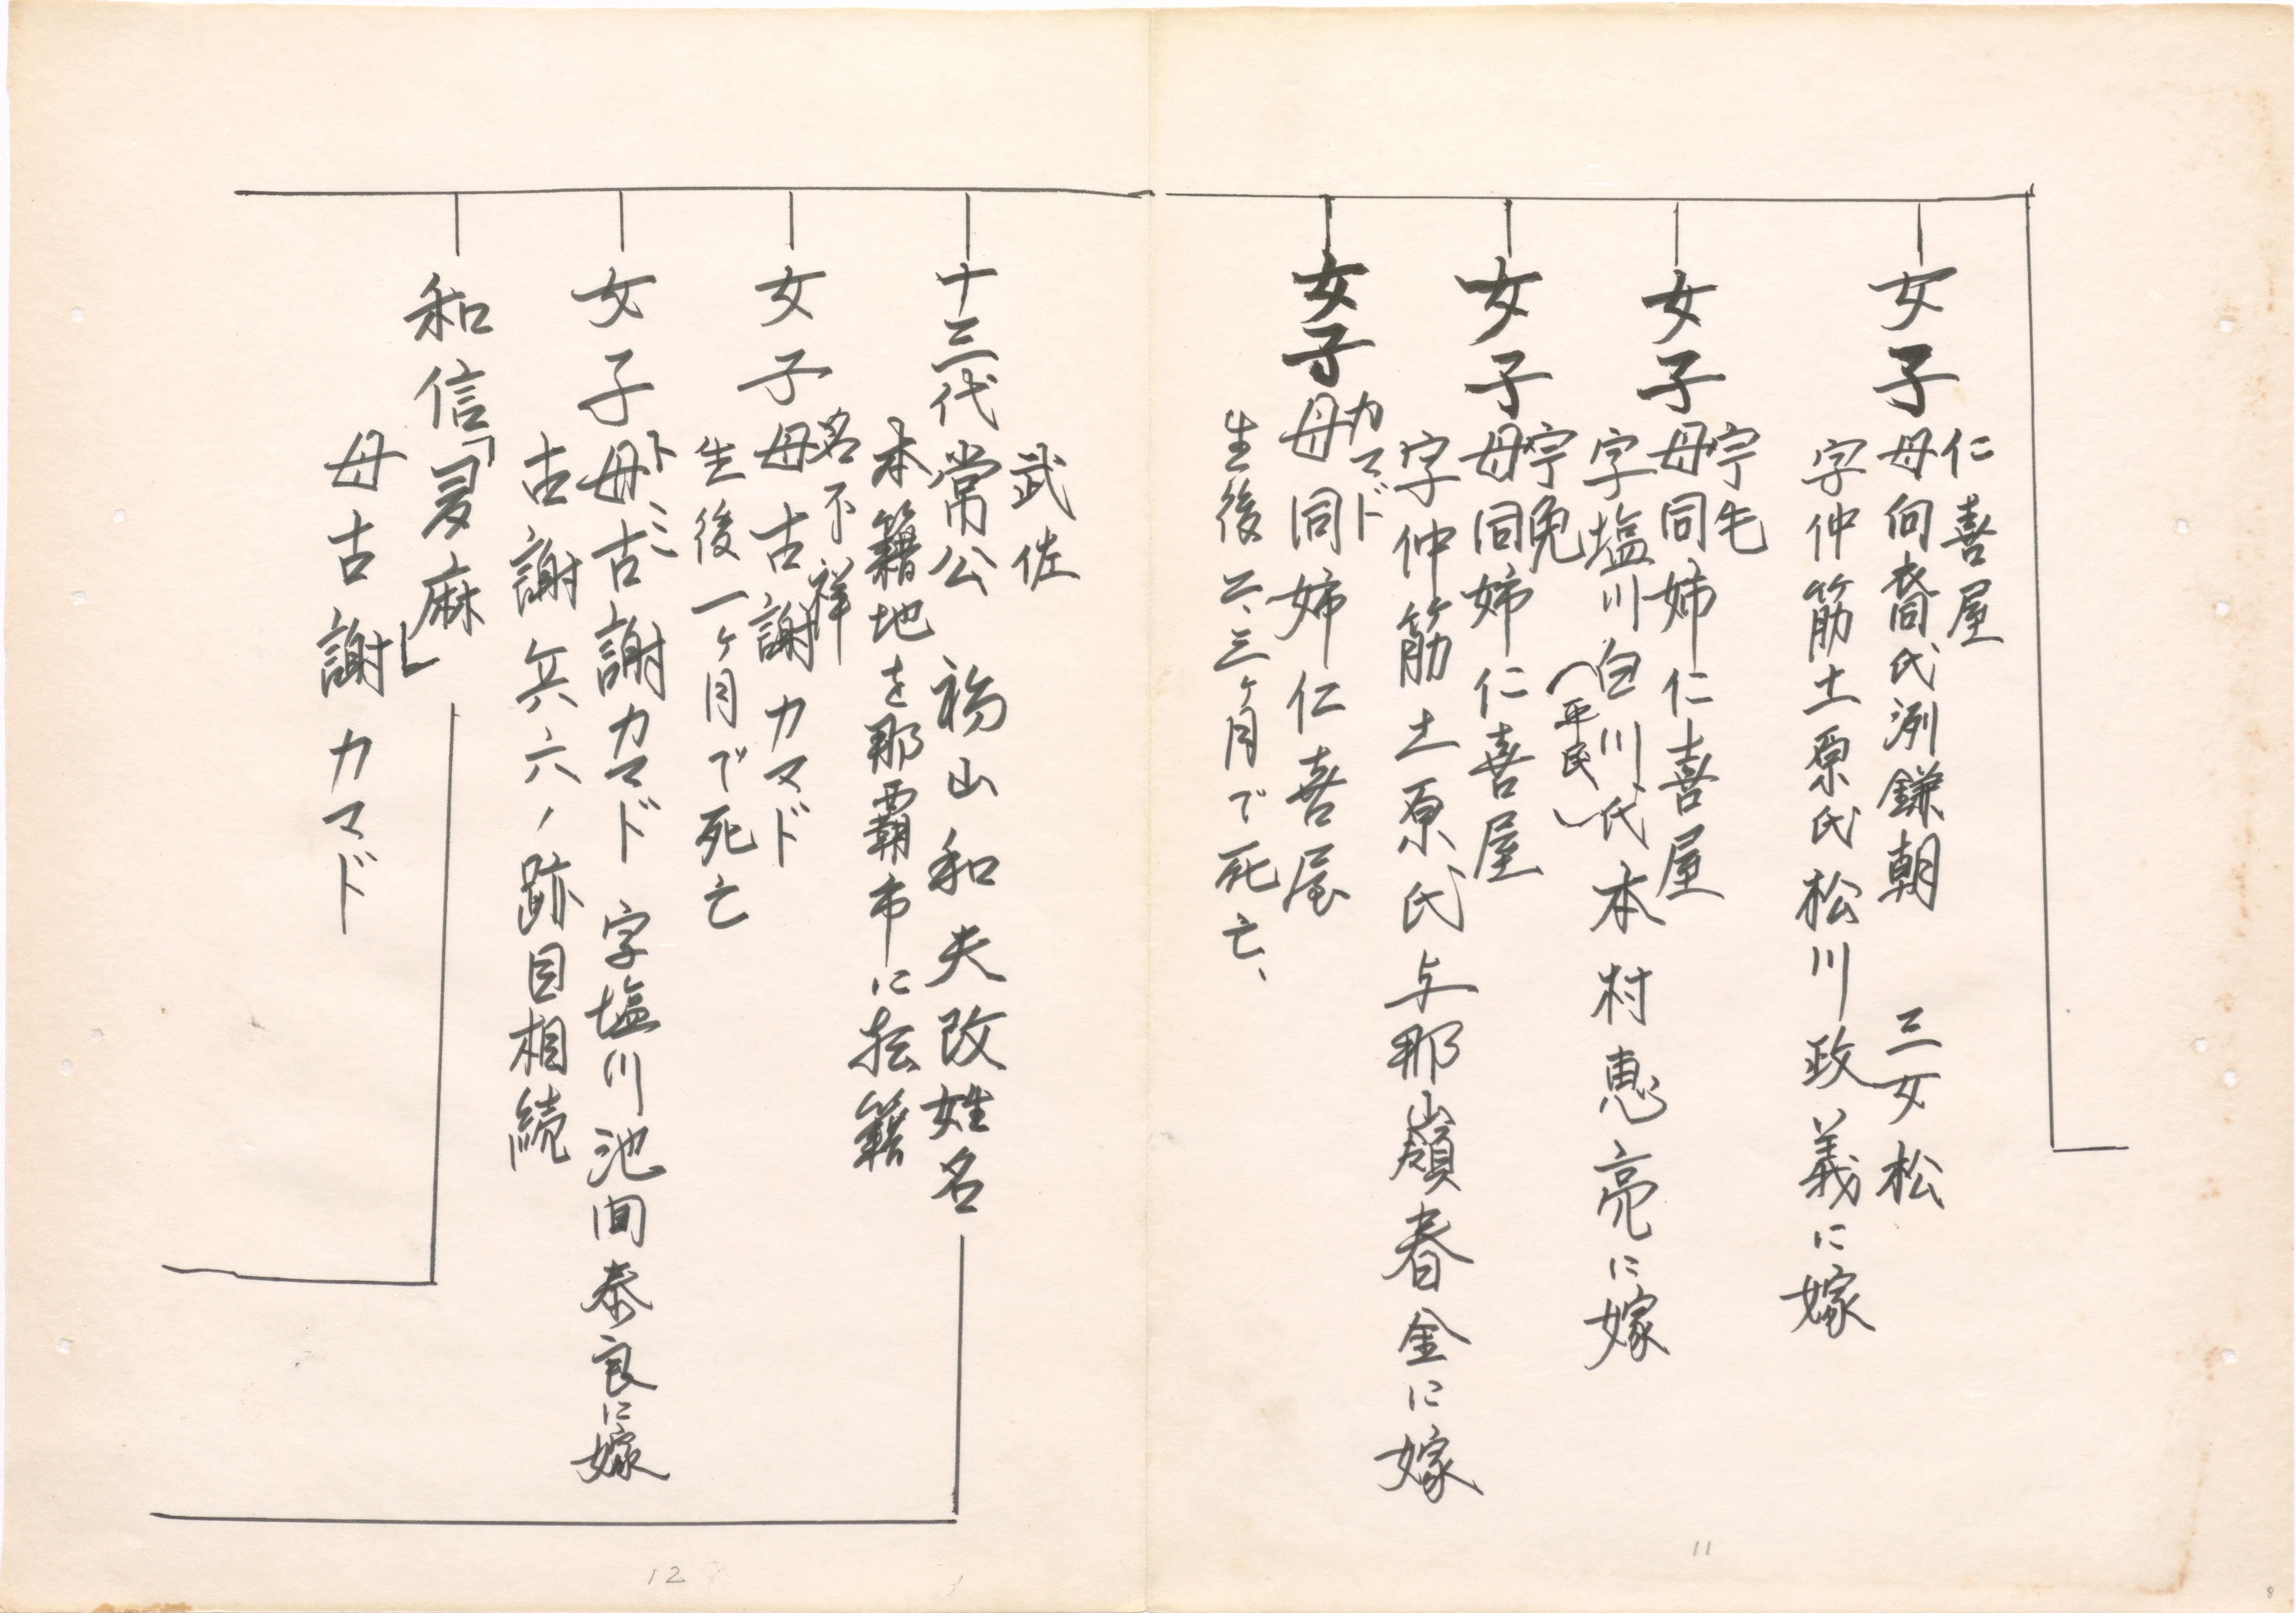 女子 仁喜屋
母向裔氏洌鎌朝 三女松
字仲筋土原氏松川政義に嫁
女子 宇毛
母同姉仁喜屋
字塩川白川氏本村恵亮に嫁
(平民)
女子 宇免
母同姉仁喜屋
字仲筋土原氏与那嶺春金に嫁
女子 カマド
母同姉仁喜屋
生後二、三ヶ月で死亡、
11
武佐
十三代常公 福山和夫改姓名
本籍地を那覇市に転籍
女子 名不祥
母古謝カマド
生後一ヶ月で死亡
女子 トミ
母古謝カマド 字塩川池間泰良に嫁
古謝兵六ノ跡目相続
和信「真麻」
母古謝カマド
12
8